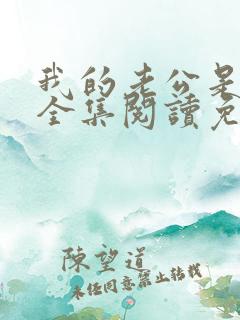 我的老公是
全集閱讀免
陳望道
未经同意禁止转载